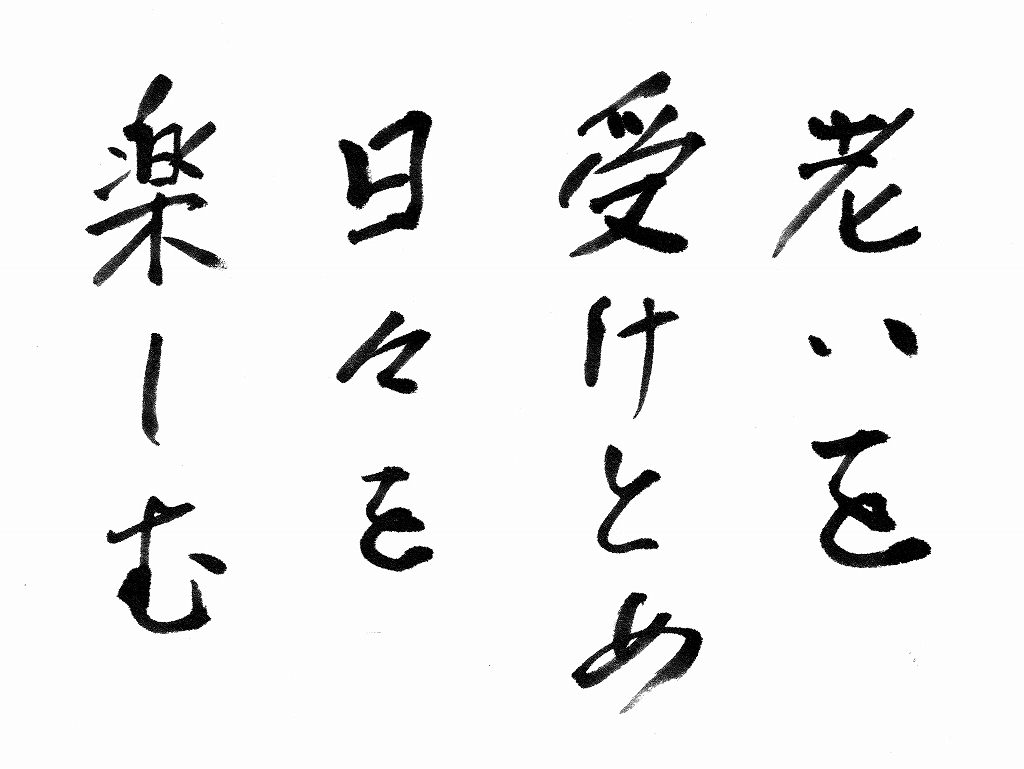 老いを
受けとめ
日々を
楽しむ